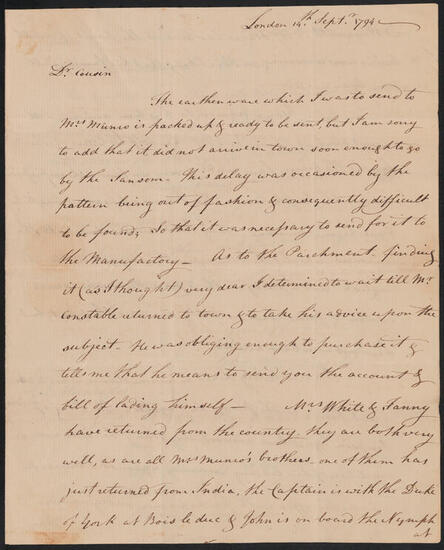 London 14th Septr. 1794
Dr. Cousin
The earthenware which I was to send to
Mrs Munro is packed up & ready to be sent, but I am sorry
to add that it did not arrive in town soon enough to go
by the Sansom. This delay was occasioned by the
pattern being out of fashion & consequently difficult
to be found; so that it was necessary to send for it to
the Manufactory — As to the Parchment finding
it (as I thought) very dear I determined to wait till Mr.
Constable returned to town & to take his advice upon the
subject - He was obliging enough to purchase it &
tells me that he means to send you the account &
bill of lading himself — Mrs White & Fanny
have returned from the country, they are both very
well, as are all Mrs Munro's brothers. one of them has
just returned from India, the Captain is with the Duke
of York at Bois le duc & John is on board the Nymph
at